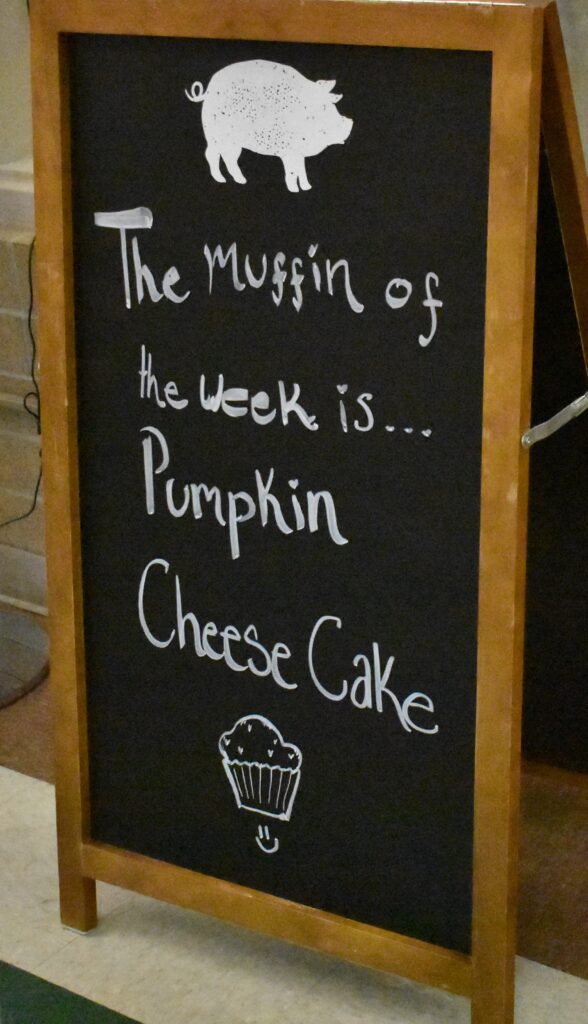 The muffin of
the week is...
Pumpkin
Cheese Cake